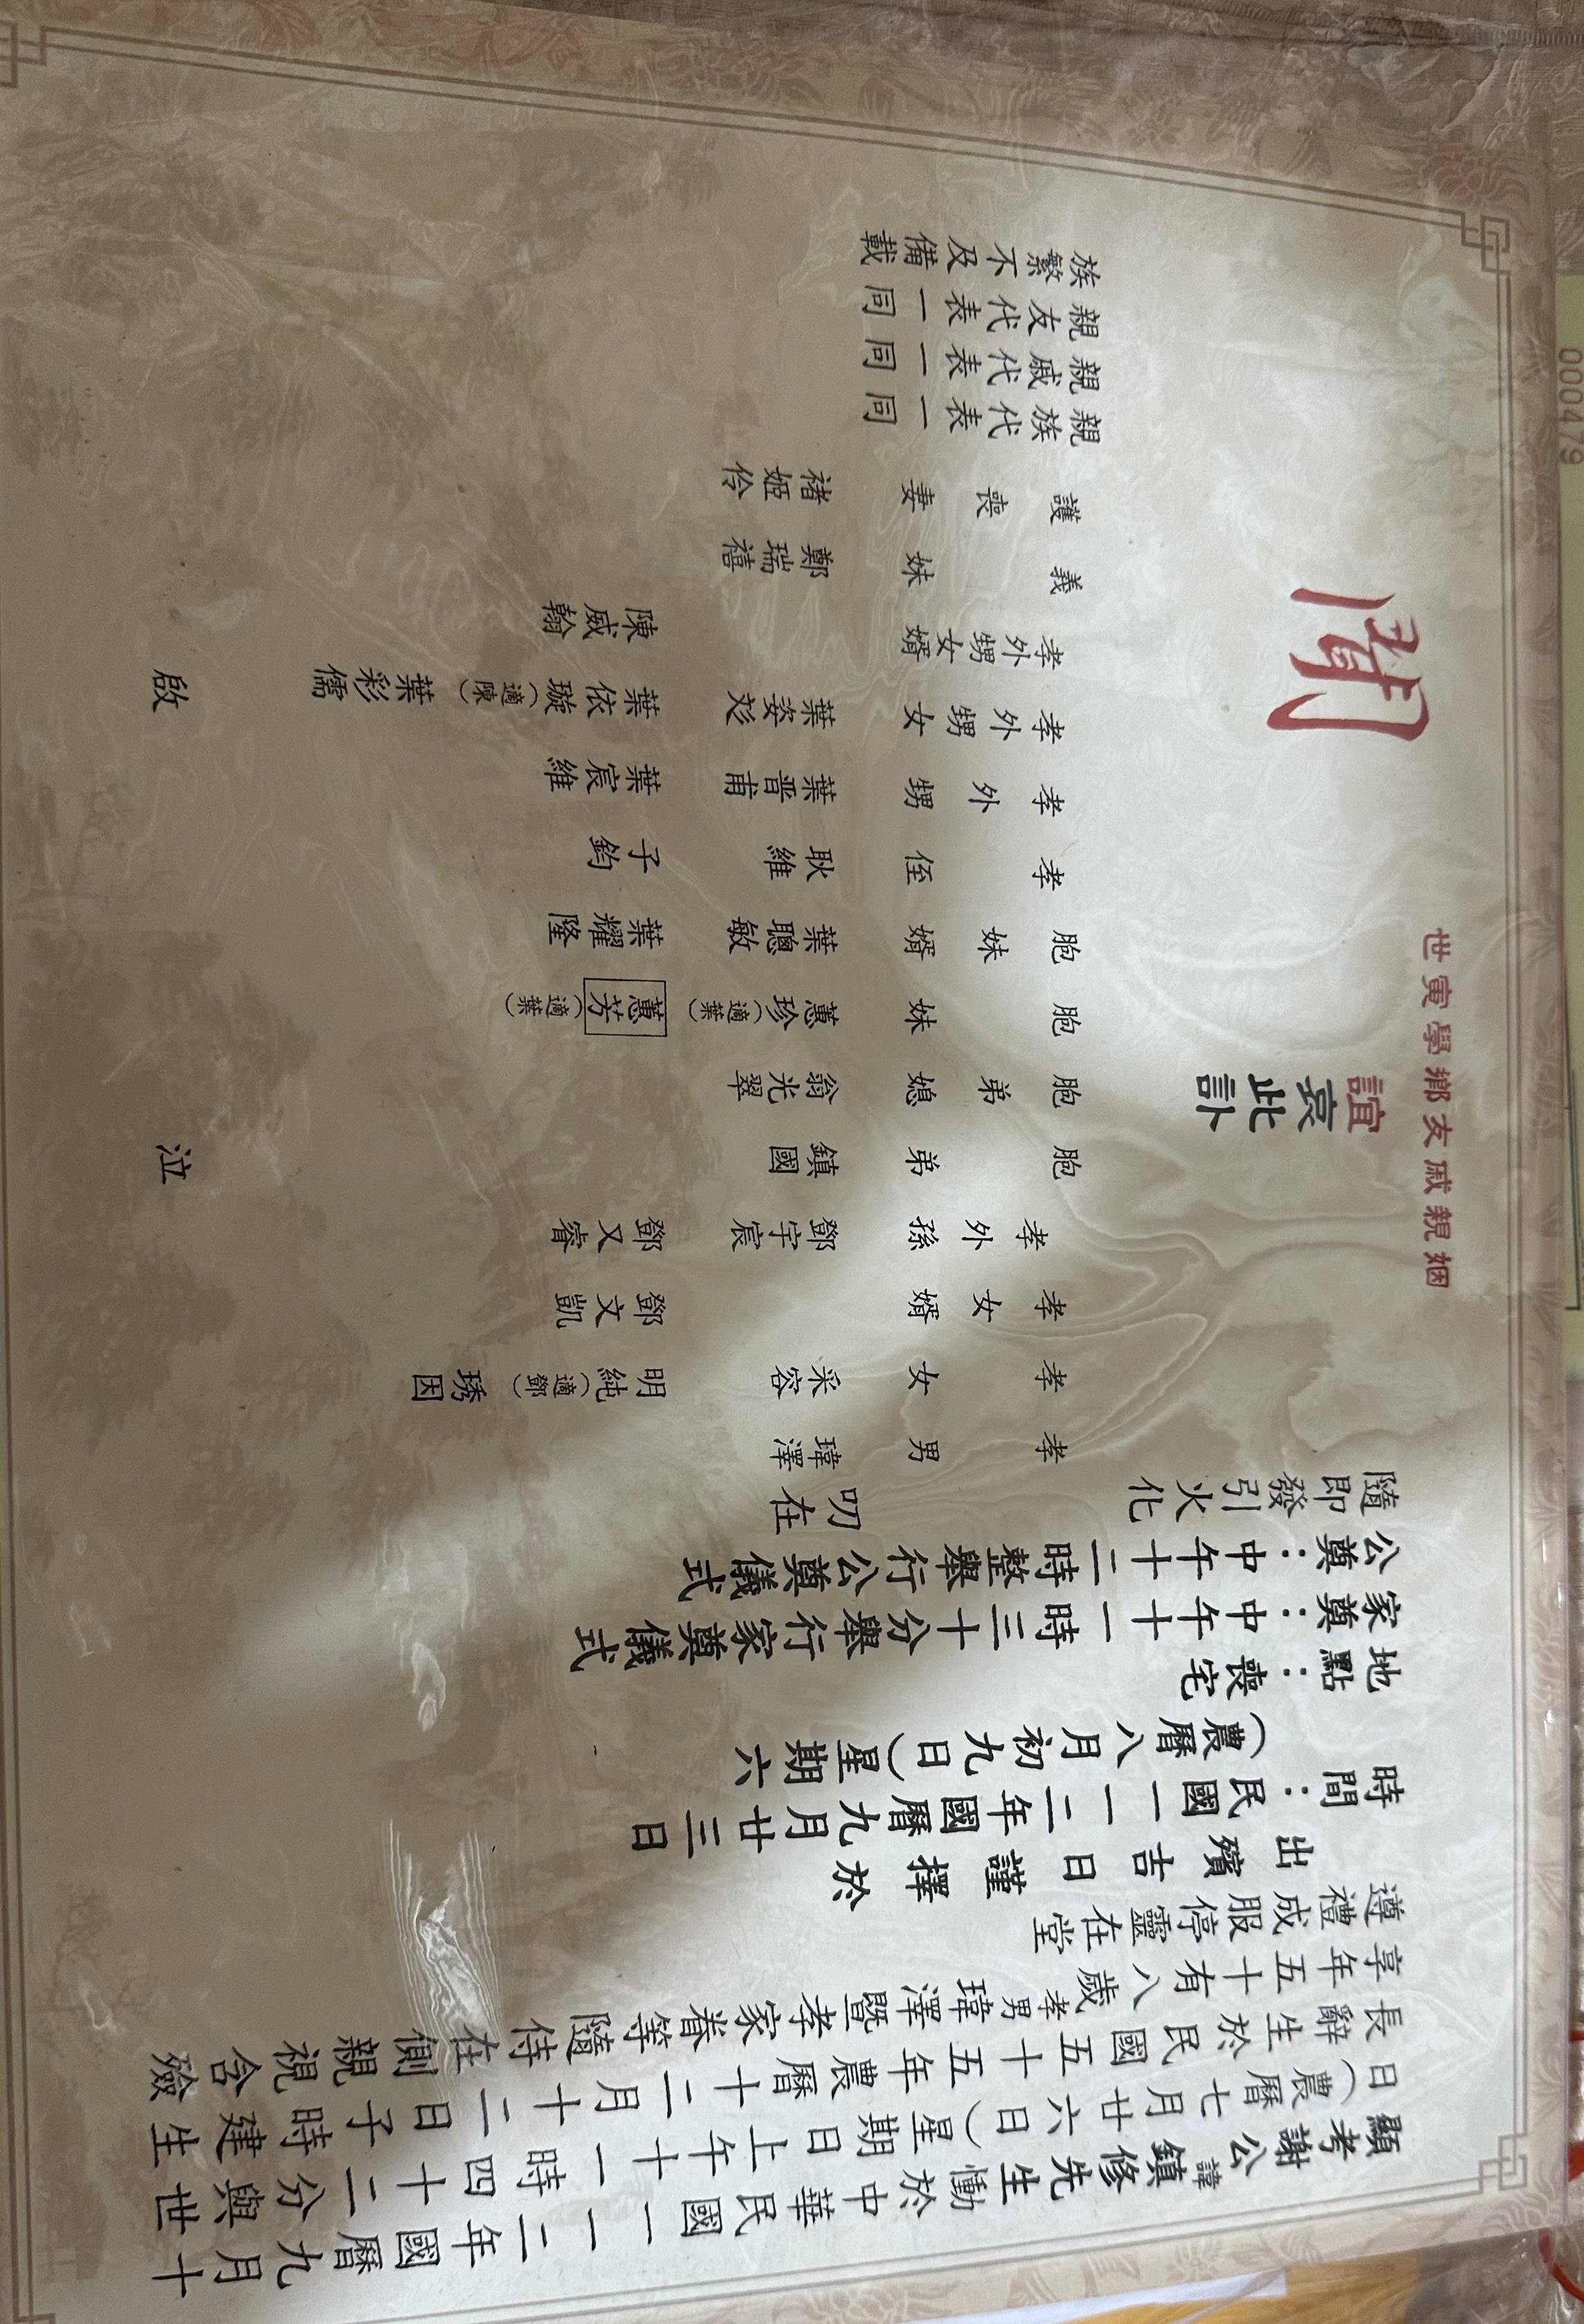 顯考謝公諱鎮修先生慟於中華民國一一二年國曆九月十
日(農曆七月廿六日)星期日上午十一時四十二分與世
長辭生於民國五十五年農曆十二月十二日子時建生
享年五十有八歲孝男瑋澤暨孝家眷等隨侍在側親視含殮
遵禮成服停靈在堂
出殯吉日謹擇於
時間:民國一一二年國曆九月廿三日
(農曆八月初九日)星期六
地點:喪宅
家奠:中午十一時三十分舉行家奠儀式
公奠:中午十二時整舉行公奠儀式
隨即發引火化
叨在
姻親戚友鄉學寅世
誼哀此訃
聞
孝男 瑋澤
孝女 采容 明純(適鄧) 琇因
孝女婿 鄧文凱
孝外孫 鄧宇宸 鄧又睿
胞弟 鎮國
胞弟媳 翁光翠
胞妹 蕙珍(適葉) 蕙芳(適葉)
胞妹婿 葉聰敏 葉耀隆
孝侄 耿維 子鈞
孝外甥 葉晋甫 葉宸維
孝外甥女 葉姿彣 葉依璇(適陳) 葉彩儒
孝外甥女婿 陳威翰
義妹 鄭瑞禧
護喪妻 褚姬伶
親族代表一同
親戚代表一同
親友代表一同
族繁不及備載
泣
啟
000479